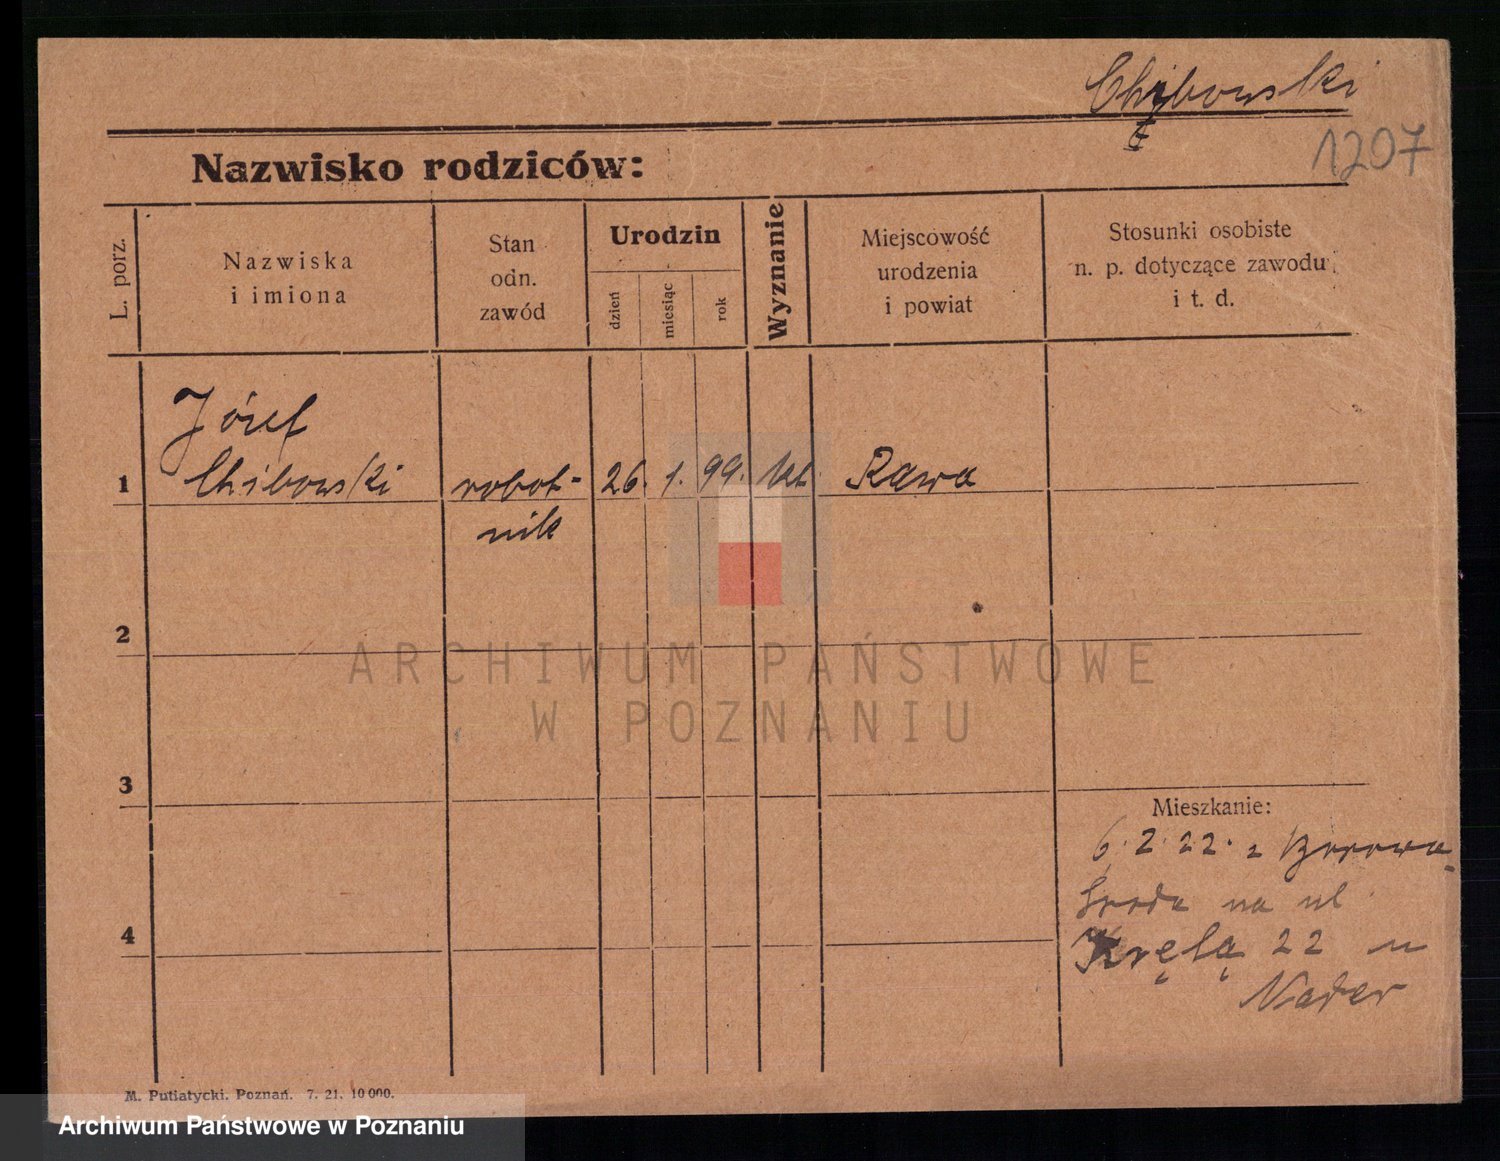 Chybowski
1207
Nazwisko rodziców:
L. porz.
Nazwiska
i imiona
Stan
odn.
zawód
Urodzin
dzień
miesiąc
rok
Wyznanie
Miejscowość
urodzenia
i powiat
Stosunki osobiste
n. p. dotyczące zawodu
i t. d.
Józef
1 Chibowski robot- 26. 1. 99. kt. Rawa
nik
2
ARCHIWUM PAŃSTWOWE
W POZNANIU
3
Mieszkanie:
6. 2. 22. z
Środa na ul
4
22 u
M. Putiatycki. Poznań. 7. 21. 10 000.
Archiwum Państwowe w Poznaniu